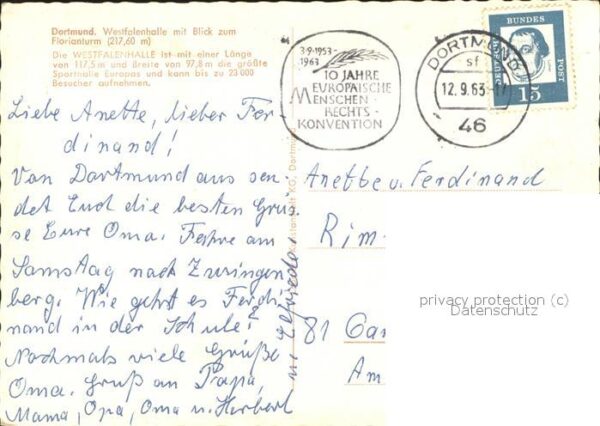 Dortmund. Westfalenhalle mit Blick zum
Florianturm (217,60 m)
Die WESTFALENHALLE ist mit einer Länge
von 117,5 m und Breite von 97,8 m die größte
Sporthalle Europas und kann bis zu 23 000
Besucher aufnehmen.
3·9·1953-
1963
10 JAHRE
EUROPÄISCHE
MENSCHEN-
RECHTS-
KONVENTION
DORTMUND
sf
12.9.63-17
46
DEUTSCHE
BUNDES
POST
15
Liebe Anette, lieber Fer-
dinand!
Von Dortmund aus sen-
det Euch die besten Grüs-
se Eure Oma. Fahre am
Samstag nach Zwingen
berg. Wie geht es Ferdi-
nand in der Schule?
Nochmals viele Grüße
Oma. Gruß an Papa,
Mama, Opa, Oma u. Herbert
Anette u. Ferdinand
Rim
81 Gar
Am
privacy protection (c)
Datenschutz